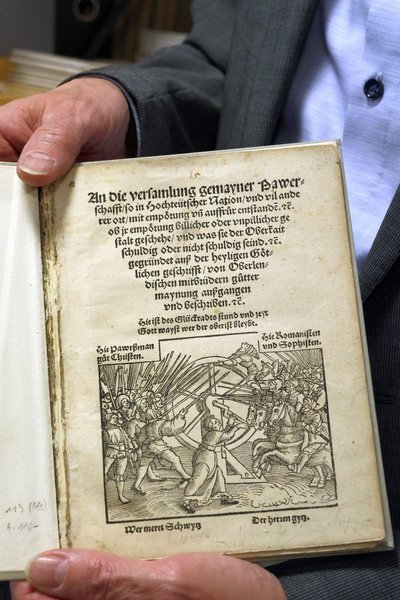 An die versamlung gemayner Pawer-
schafft/ so in Hochteütscher Nation/ und vil ande
rer ort/ mit empörung uñ auffrůr entstandē. ꝛc.
ob jr empörung billicher oder unpillicher ge
stalt geschehe/ und was sie der Oberkait
schuldig oder nicht schuldig seind. ꝛc.
gegründet auß der heyligen Göt-
lichen geschrifft/ von Oberlen-
dischen mitbrüdern gütter
maynung außgangen
und beschriben. ꝛc.
Hie ist des Glückradts stund und zeyt
Gott wayst wer der oberist bleybt.
Hie Pawrßman
gůt Christen.
Hie Romanisten
und Sophisten.
Wer meret Schwytz
Der herren gytz.
113